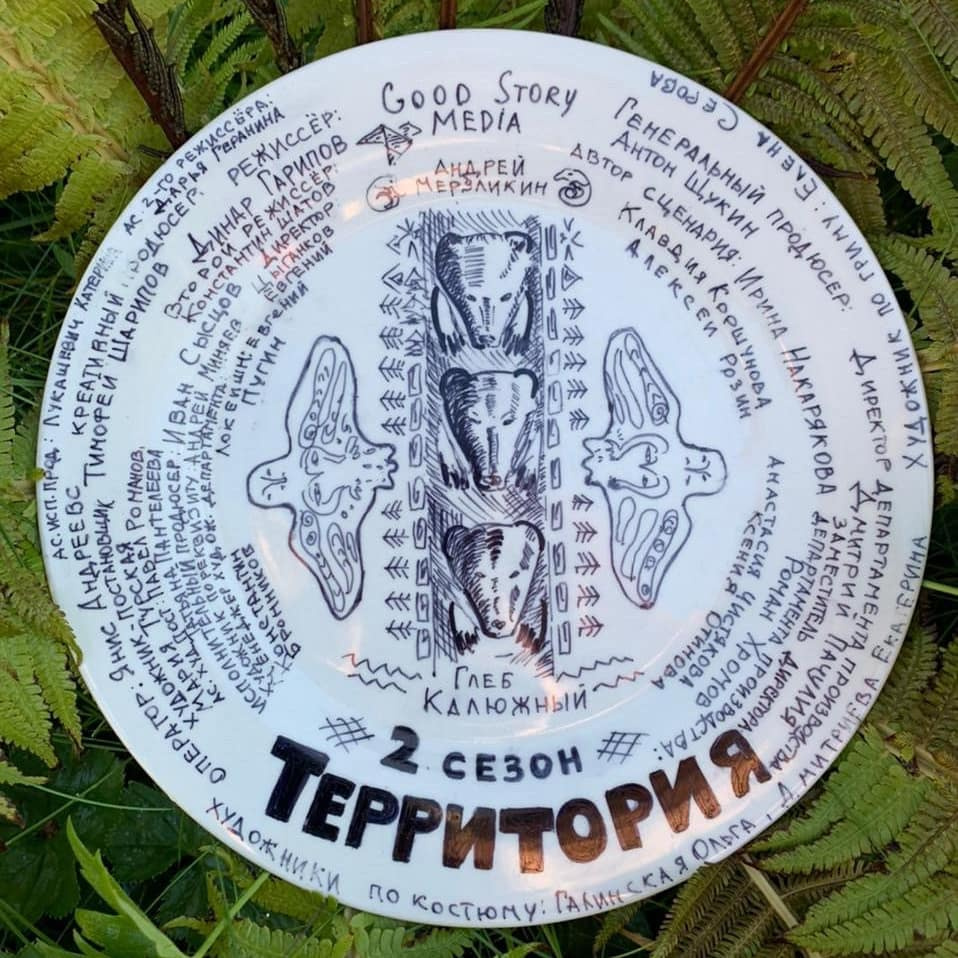 GOOD STORY
MEDIA
АНДРЕЙ
МЕРЗЛИКИН
РЕЖИССЁР:
ДИНАР
ГАРИПОВ
ВТОРОЙ РЕЖИССЕР:
КОНСТАНТИН ШАТОВ
ДИРЕКТОР
ЦЫГАНКОВ
ЕВГЕНИЙ
ЛОКЕЙШН: ЕВГЕНИЙ
ПУГИН
АС. 2-ГО РЕЖИССЁРА:
ДАРЬЯ ГЕРАНИНА
КРЕАТИВНЫЙ ПРОДЮСЕР:
ТИМОФЕЙ ШАРИПОВ
АС.ИСП.ПРОД: ЛУКАШЕВИЧ КАТЕРИНА
ОПЕРАТОР: ЯНИС АНДРЕЕВС
ХУДОЖНИК ПОСТАНОВЩИК
МАРИЯ ТУРСКАЯ
АС.ХУД.ПОСТ.: ПАВЕЛ РОМАНОВ,
НА ПАНТЕЛЕЕВА
ИСПОЛНИТЕЛЬНЫЙ ПРОДЮСЕР: ИВАН СЫСЦОВ
ХУДОЖНИК ПО РЕКВИЗИТУ: АНДРЕЙ МИНЯЕВ
МЕНЕДЖЕР ХУДОЖ. ДЕПАРТАМЕНТА
КОНСТАНТИН
ГЕНЕРАЛЬНЫЙ ПРОДЮСЕР:
АНТОН ЩУКИН
АВТОР СЦЕНАРИЯ: ИРИНА НАКАРЯКОВА
КЛАВДИЯ КОРШУНОВА
АЛЕКСЕЙ РОЗИН
АНАСТАСИЯ ЧИСТЯКОВА
КСЕНИЯ ОТИНОВА
ДИРЕКТОР ДЕПАРТАМЕНТА ПРОИЗВОДСТВА
ДМИТРИЙ ПАЧУЛИЯ
ЗАМЕСТИТЕЛЬ ДИРЕКТОРА
ДЕПАРТАМЕНТА ПРОИЗВОДСТВА:
РОМАН ХРОМОВ
ХУДОЖНИК ПО ГРИМУ: ЕЛЕНА СЕРОВА
ГЛЕБ
КАЛЮЖНЫЙ
2 СЕЗОН
ТЕРРИТОРИЯ
ХУДОЖНИКИ ПО КОСТЮМУ: ГАЛИНСКАЯ ОЛЬГА, ДМИТРИЕВА ЕКАТЕРИНА